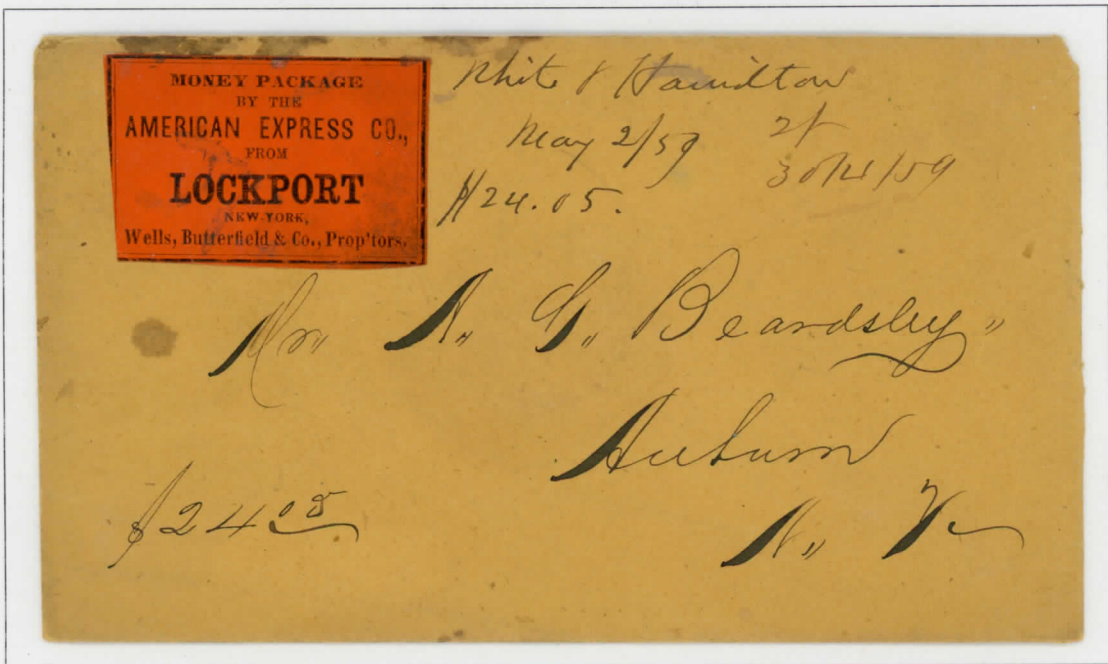 MONEY PACKAGE
BY THE
AMERICAN EXPRESS CO.,
FROM
LOCKPORT
NEW-YORK,
Wells, Butterfield & Co., Prop'tors.
White & Hamilton
May 2/59
$24.05.
Mr. A. G. Beardsley
Auburn
N. Y.
$24.05